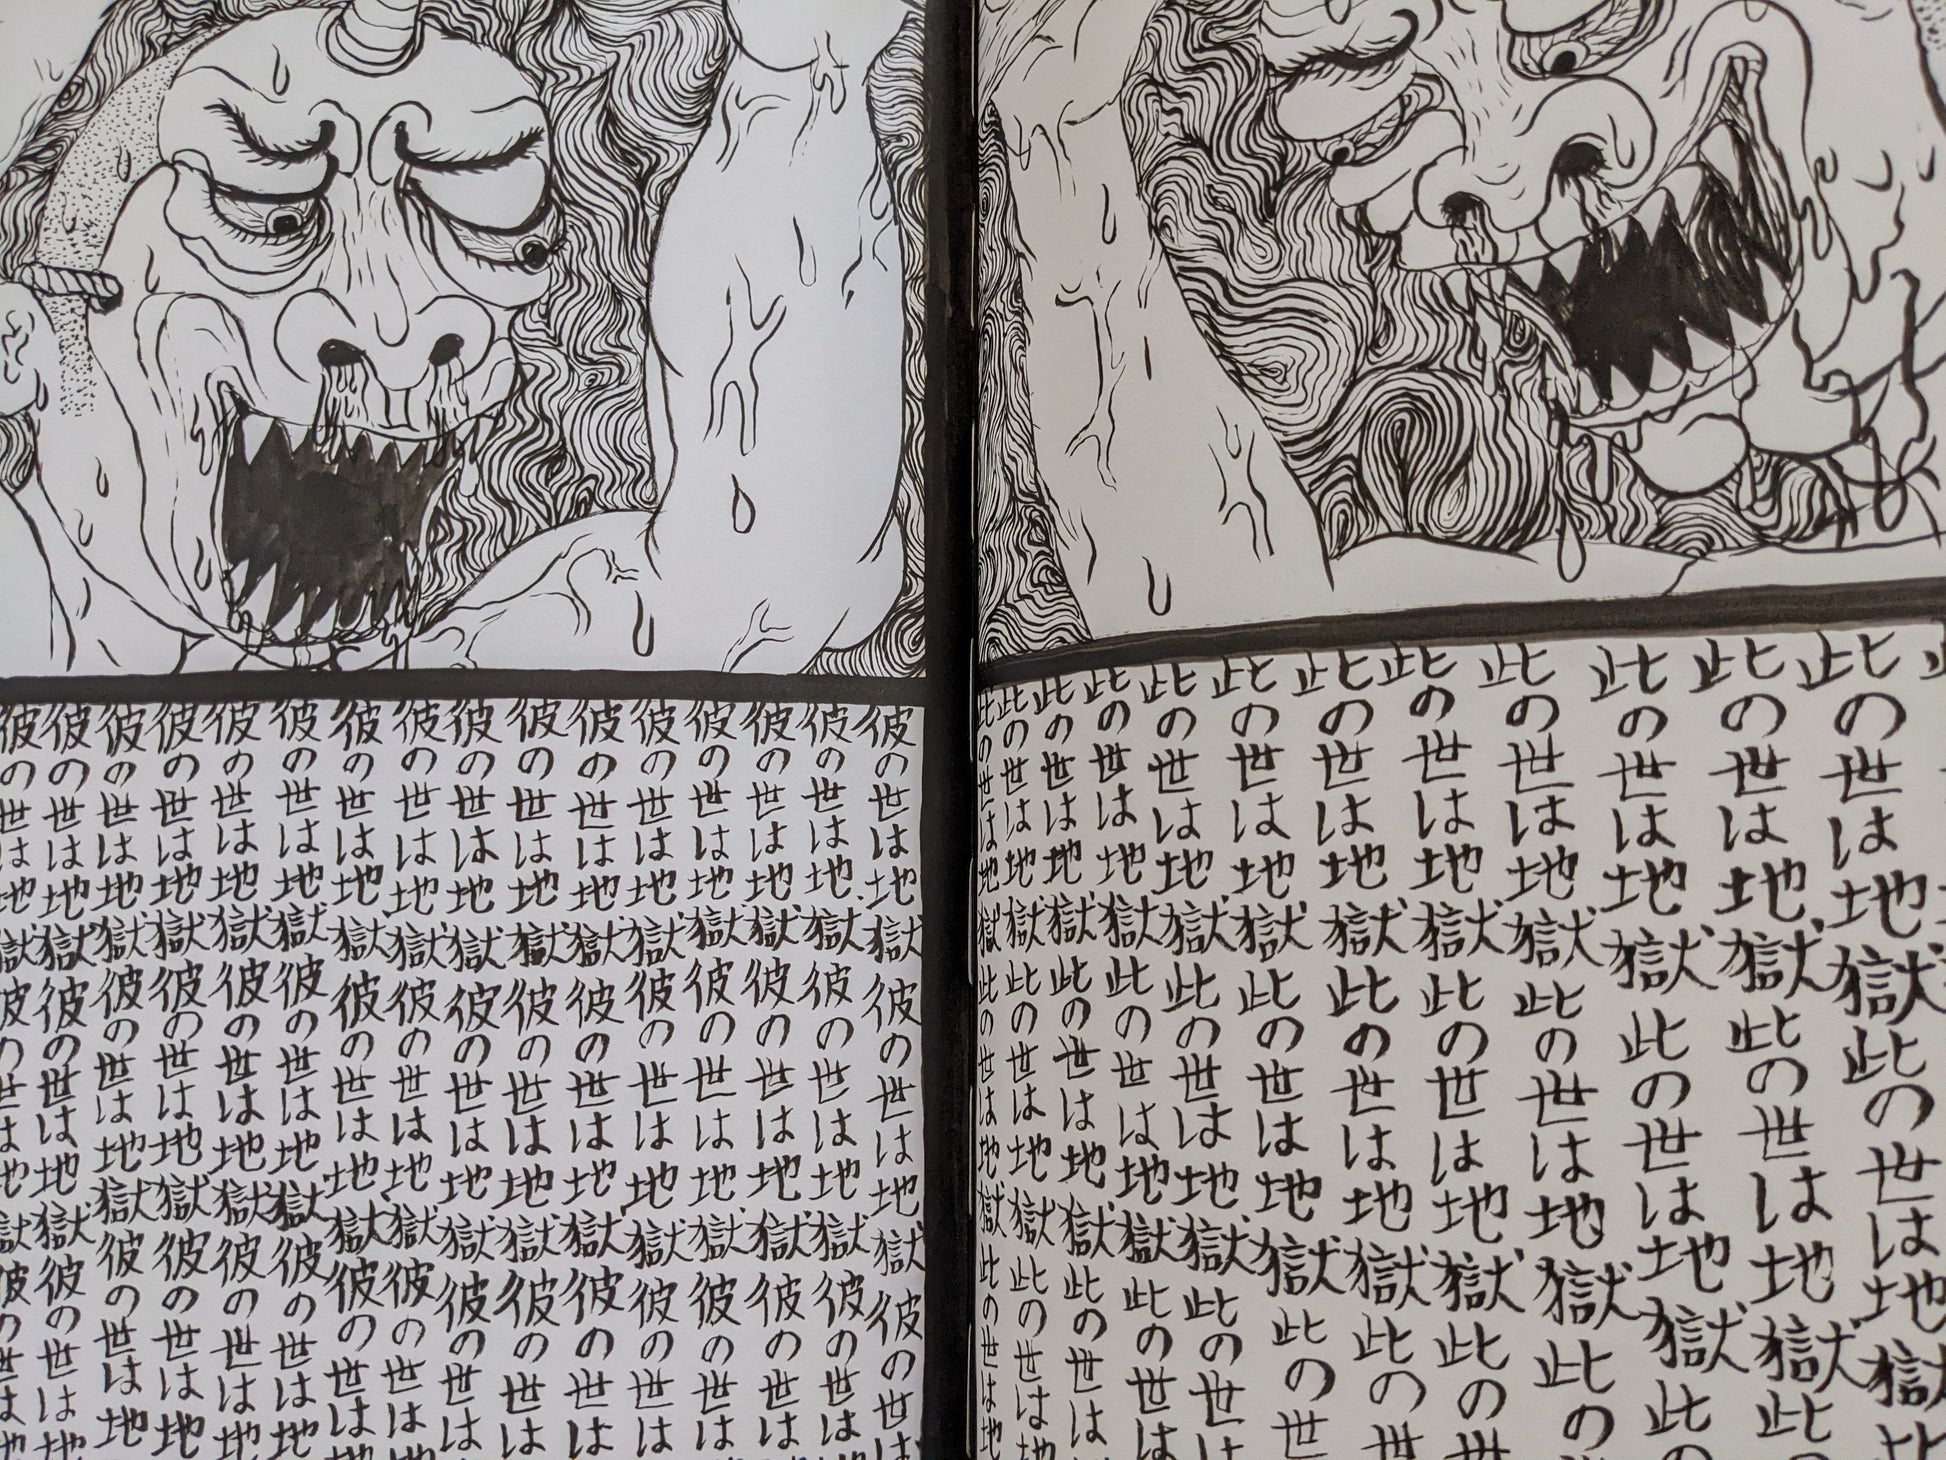 此の世は地獄此の世は地獄此
此の世は地獄此の世は地獄此の
此の世は地獄此の世は地獄此の
此の世は地獄此の世は地獄此の
此の世は地獄此の世は地獄此の世
此の世は地獄此の世は地獄此の世
此の世は地獄此の世は地獄此の世
此の世は地獄此の世は地獄此の世は
此の世は地獄此の世は地獄此の世は
此の世は地獄此の世は地獄此の世は
此の世は地獄此の世は地獄此の世は地
此の世は地獄此の世は地獄此の世は地
彼の世は地獄彼の世は地獄彼の世は
彼の世は地獄彼の世は地獄彼の世は
彼の世は地獄彼の世は地獄彼の世は
彼の世は地獄彼の世は地獄彼の世は
彼の世は地獄彼の世は地獄彼の世は
彼の世は地獄彼の世は地獄彼の世は
彼の世は地獄彼の世は地獄彼の世は
彼の世は地獄彼の世は地獄彼の世は
彼の世は地獄彼の世は地獄彼の世は地
彼の世は地獄彼の世は地獄彼の世は地
彼の世は地獄彼の世は地獄彼の世は地
彼の世は地獄彼の世は地獄彼の世は地
彼の世は地獄彼の世は地獄彼の世は地
彼の世は地獄彼の世は地獄彼の世は地
彼の世は地獄彼の世は地獄彼の世は地
彼の世は地獄彼の世は地獄彼の世は地